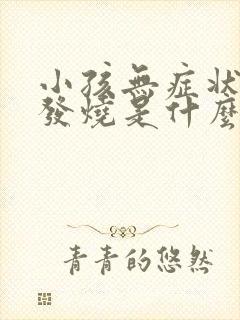 小孩無症狀
發燒是什麼
青青的悠然